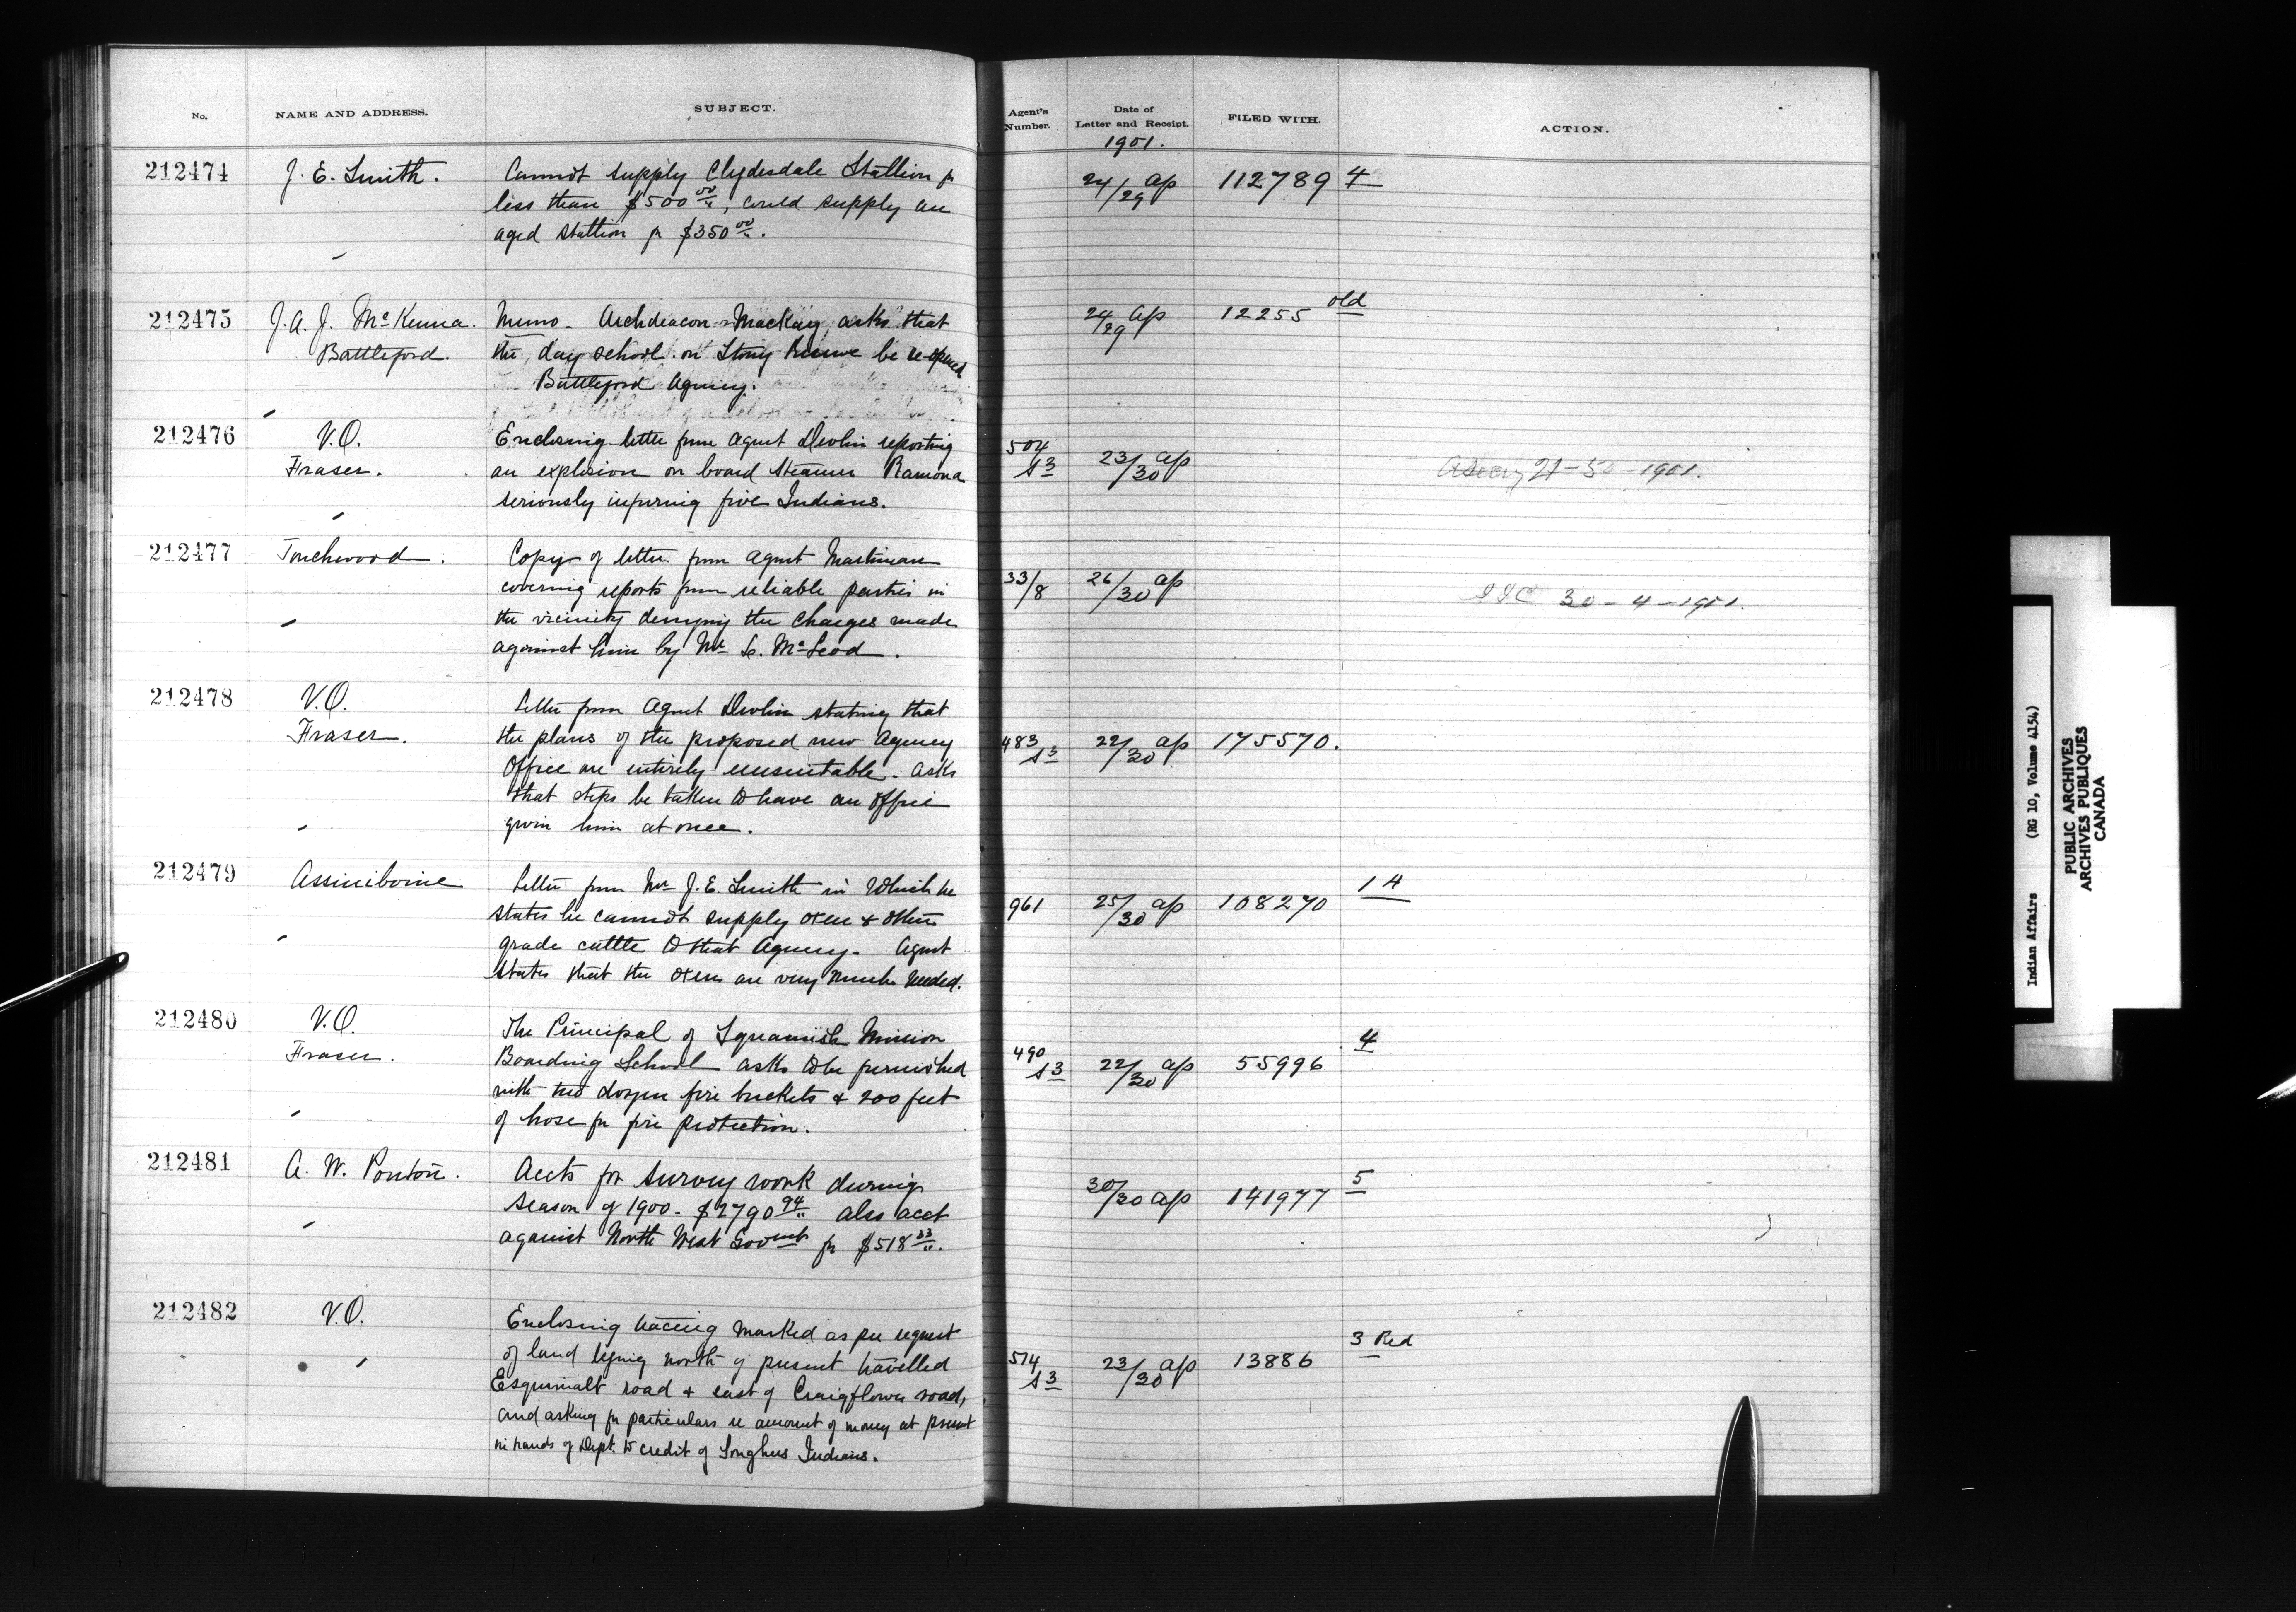 No. NAME AND ADDRESS. SUBJECT. Agent's Number. Date of Letter and Receipt. FILED WITH. ACTION.
1901.
212474 J. E. Smith. Cannot supply Clydesdale Stallion fr 24/29 ap 112789 4
less than $500 00/", could supply an
aged stallion fr $350 00/".
212475 J. A. J. McKenna. Memo - Archdeacon Mackay, asks that 24/29 ap 12255 old
Battleford. the day school on Stony Reserve be re-opened
Battleford Agency.
212476 V.O. Enclosing letter from Agent Devlin reporting 504/S3 23/30 ap
Fraser. an explosion on board steamer Ramona 1901.
seriously injuring five Indians.
212477 Touchwood. Copy of letter from Agent Martineau
covering reports from reliable parties in 33/8 26/30 ap 30-4-1901.
the vicinity denying the charges made
against him by Mr. McLeod.
212478 V.O. Letter from Agent Devlin stating that
Fraser. the plans of the proposed new Agency 483/S3 22/30 ap 175570.
Office are entirely unsuitable. asks
that steps be taken to have an office
given him at once.
212479 Assiniboine Letter from Mr J. E. Smith in which he
states he cannot supply oxen & other 961 25/30 ap 108270 14
grade cattle to that Agency. Agent
states that the oxen are very much needed.
212480 V.O. The Principal of Squamish Mission
Fraser. Boarding School asks to be furnished 490/S3 22/30 ap 55996 4
with two dozen fire buckets & 200 feet
of hose fr fire protection.
212481 A. W. Ponton. Accts for survey work during
season of 1900 - $2790 94/" also acct 30/30 ap 141977 5
against North West Govmt fr $518 33/".
212482 V.O. Enclosing tracing marked as per request
of land lying north of present travelled 514/S3 23/30 ap 13886 3 Red
Esquimalt road & east of Craigflower road,
and asking fr particulars re amount of money at present
in hands of Dept. to credit of Songhees Indians.
Indian Affairs (RG 10, Volume 4154)
PUBLIC ARCHIVES
ARCHIVES PUBLIQUES
CANADA